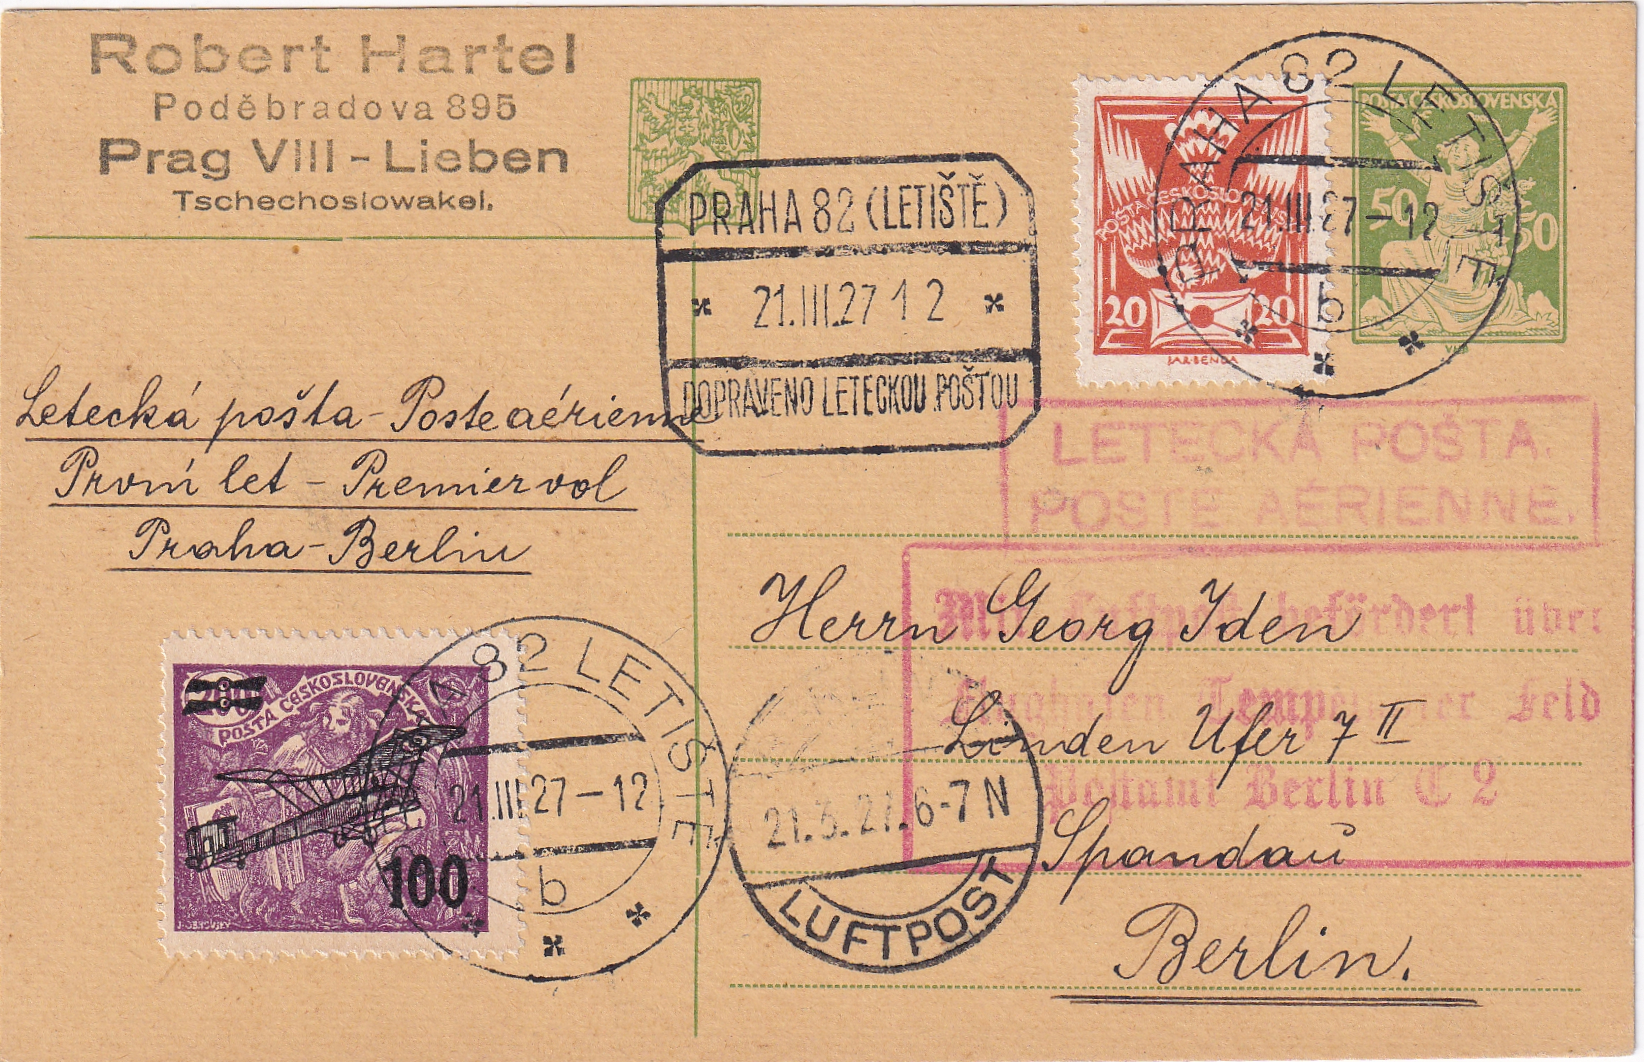 Robert Hartel
Poděbradova 895
Prag VIII - Lieben
Tschechoslowakei.
PRAHA 82 (LETIŠTĚ)
21.III.27 12
DOPRAVENO LETECKOU POŠTOU
POŠTA ČESKOSLOVENSKÁ
20 20
POŠTA ČESKOSLOVENSKÁ
50 50
PRAHA 82 LETIŠTĚ
21.III.27-12
b
Letecká pošta - Poste aérienne
První let - Premier vol
Praha - Berlin
LETECKÁ POŠTA.
POSTE AÉRIENNE.
Mit Luftpost befördert über
Flughafen Tempelhofer Feld
Postamt Berlin C 2
Herrn Georg Iden
Linden Ufer 7 II
Spandau
Berlin.
POŠTA ČESKOSLOVENSKÁ
100
82 LETIŠTĚ
21.III.27-12
b
21.3.27. 6-7 N
LUFTPOST